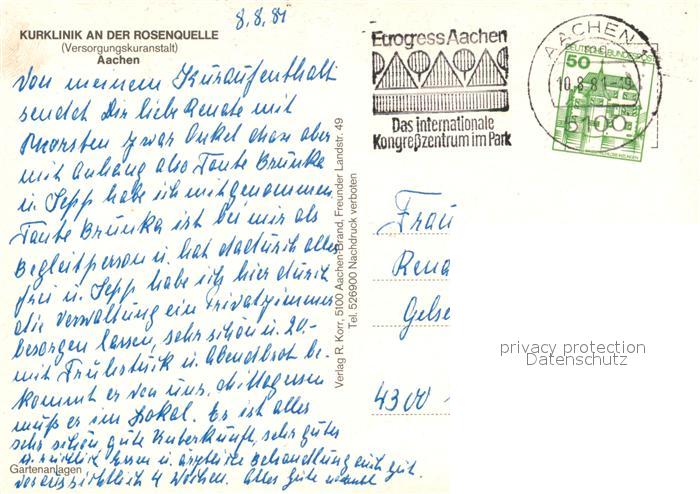 8.8.81
KURKLINIK AN DER ROSENQUELLE
(Versorgungskuranstalt)
Aachen
Von meinem Kuraufenthalt
sendet Dir liebe Renate mit
Thorsten zwar Onkel aber
mit Anhang also Tante Brunka
u. Sepp habe ich mitgenommen
Tante Brunka ist bei mir als
Begleitperson u. hat dadurch alles
frei u. Sepp habe ich hier durch
die Verwaltung ein Privatzimmer
besorgen lassen, sehr schön u. 20.-
mit Frühstück u. Abendbrot be-
kommt er von uns, Mittagessen
muß er im Lokal. Es ist alles
sehr schön gute Unterkunft, sehr gutes
u. Essen u. ärztliche Behandlung auch gut.
voraussichtlich 4 Wochen. Alles Gute
Gartenanlagen
Verlag R. Korr, 5100 Aachen-Brand, Freunder Landstr. 49
Tel. 526900 Nachdruck verboten
Eurogress Aachen
Das internationale
Kongreßzentrum im Park
AACHEN
10.8.81-19
5100
DEUTSCHE BUNDESPOST
50
Frau
Rena
Gelse
4300
privacy protection
Datenschutz